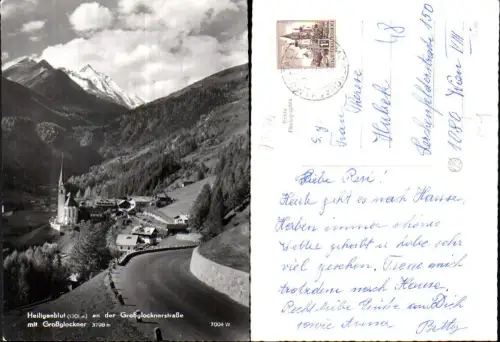 Heiligenblut (1301m) an der Großglocknerstraße
mit Großglockner 3798 m
7004 W
Photo
Photographie
Frau
Therese
Hubek 48
Lerchenfelderstraße 150
1080 Wien VIII
Liebe Resi!
Heute geht es nach Hause.
Haben immer schöne
gehabt u. habe sehr
viel gesehen. Freue mich
trotzdem nach Hause.
Recht liebe Grüße an Dich
sowie Anna